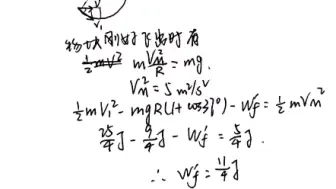 V₁
物块刚好飞出时有
½mV² m Vₙ²/R = mg.
Vₙ² = 5 m²/s²
½mV₁² - mgR(1+cos37°) - Wf' = ½mVₙ²
25/4 J - 9/4 J - Wf' = 5/4 J.
∴ Wf' = 11/4 J